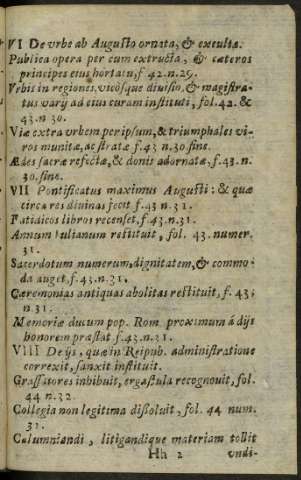 VI De vrbe ab Augusto ornata, & exculta.
Publica opera per eum extructa, & cæteros
principes eius hortatu, f 42. n.29.
Vrbis in regiones, vicosque diuisio, & magistra-
tus varij ad eius curam instituti, fol. 42. &
43. n 30.
Viæ extra vrbem per ipsum, & triumphales vi-
ros munitæ, ac stratæ f. 43 n. 30. fine.
Ædes sacræ refectæ, & donis adornatæ, f. 43. n.
30. fine.
VII Pontificatus maximus Augusti: & quæ
circa res diuinas fecit f. 43 n. 31.
Fatidicos libros recenset, f. 43. n. 31.
Annum Iulianum restituit, fol. 43. numer.
31.
Sacerdotum numerum, dignitatem, & commo-
da auget, f. 43. n. 31.
Cæremonias antiquas abolitas restituit, f. 43.
n. 31.
Memoriæ ducum pop. Rom proximum á dijs
honorem præstat f. 43. n. 31.
VIII De ijs, quæ in Reipub. administratione
correxit, sanxit instituit.
Grassatores inhibuit, ergastula recognouit, fol.
44 n. 32.
Collegia non legitima dissoluit, fol. 44 num.
31.
Calumniandi, litigandique materiam tollit
Hh 2 vndi-